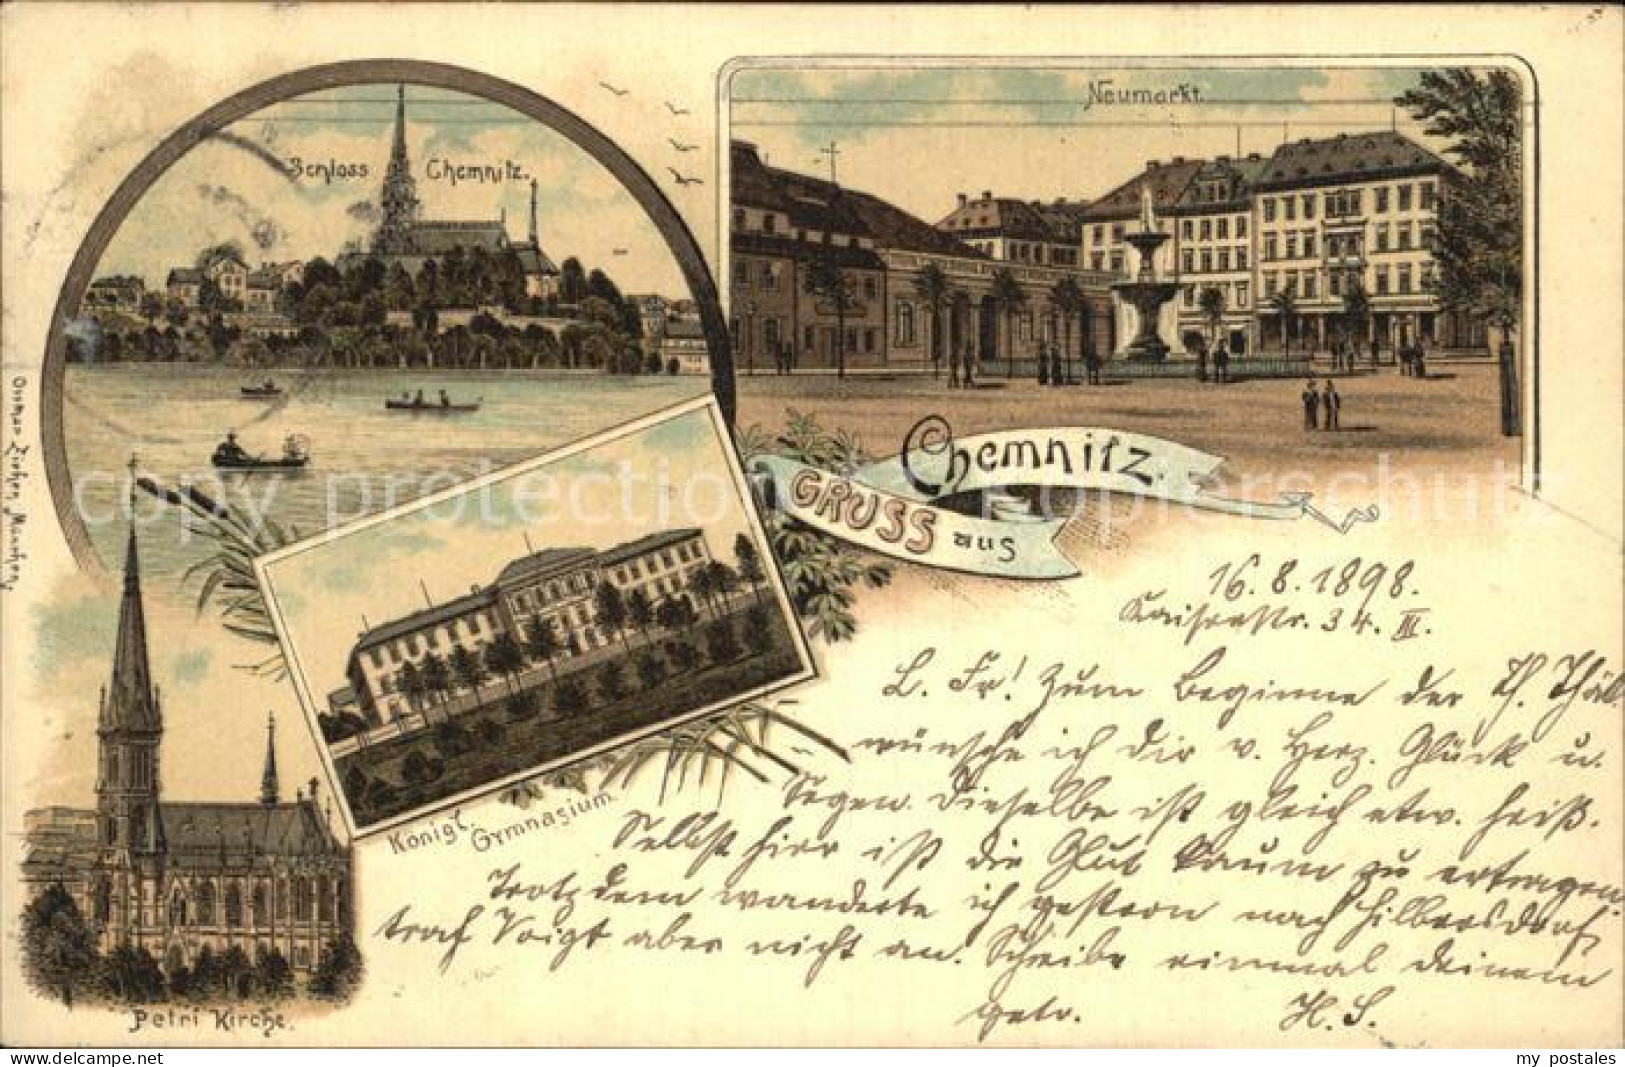 Schloss Chemnitz.
Neumarkt.
Chemnitz.
GRUSS aus
Königl. Gymnasium.
Petri Kirche.
Ottmar Zieher, München,
16.8.1898.
Kaiserstr. 34. III.
L. Fr! Zum Beginne der
wünsche ich Dir v. Herz. Glück u.
Segen. Dieselbe ist gleich etw. heiß.
Selbst hier ist die Glut kaum zu ertragen.
Trotzdem wanderte ich gestern nach Hilbersdorf,
traf Voigt aber nicht an. Schreibe einmal Deinem
getr. H. S.
copy protection - Kopierschutz
my postales